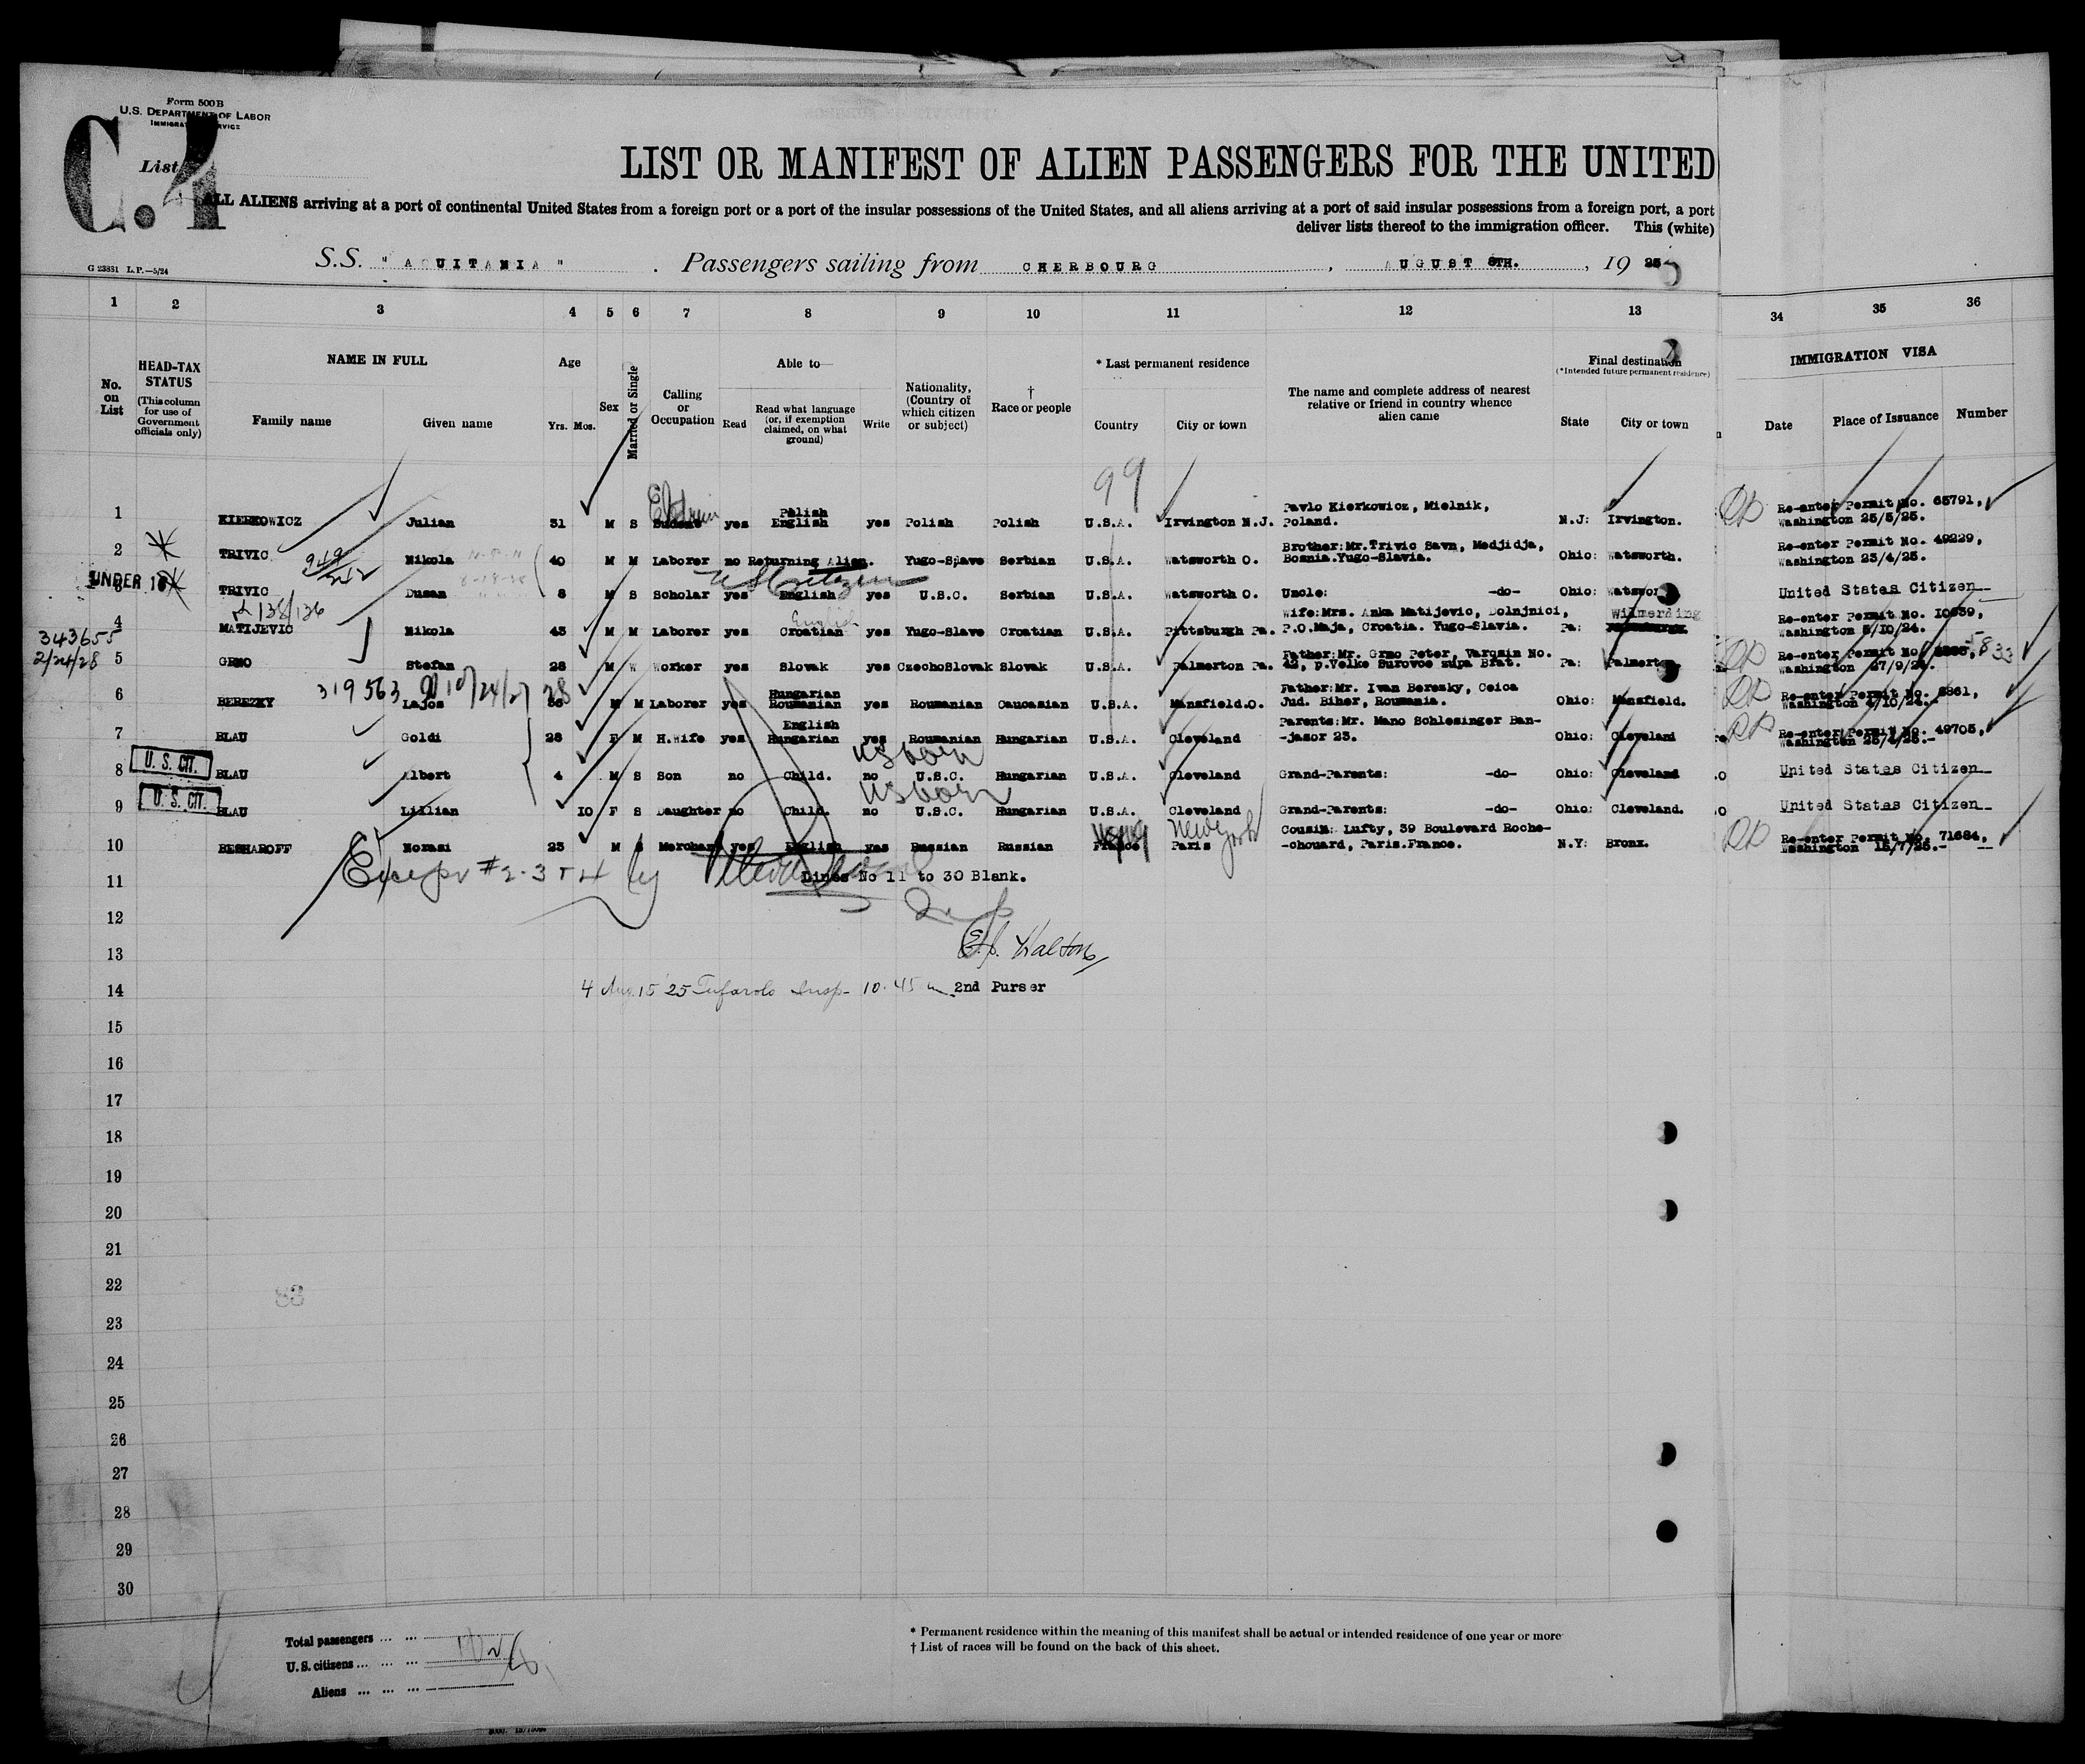 Form 500B
U.S. DEPARTMENT OF LABOR
C. 4
List
LIST OR MANIFEST OF ALIEN PASSENGERS FOR THE UNITED
ALL ALIENS arriving at a port of continental United States from a foreign port or a port of the insular possessions of the United States, and all aliens arriving at a port of said insular possessions from a foreign port, a port
deliver lists thereof to the immigration officer. This (white)
G 23831 L.P.—5/24
S.S. " AQUITANIA " . Passengers sailing from CHERBOURG , AUGUST 8TH. , 19 25
1 2 3 4 5 6 7 8 9 10 11 12 13 34 35 36
No. on List
HEAD-TAX STATUS (This column for use of Government officials only)
NAME IN FULL
Family name Given name
Age
Yrs. Mos.
Sex
Married or Single
Calling or Occupation
Able to
Read Read what language (or, if exemption claimed, on what ground) Write
Nationality, (Country of which citizen or subject)
† Race or people
* Last permanent residence
Country City or town
The name and complete address of nearest relative or friend in country whence alien came
Final destination
(*Intended future permanent residence)
State City or town
IMMIGRATION VISA
Date Place of Issuance Number
99
1 KIERKOWICZ Julian 31 M S yes Polish English yes Polish Polish U.S.A. Irvington N.J. Pavlo Kierkowicz, Mielnik, Poland. N.J: Irvington. Re-enter Permit No. 65791, Washington 25/5/25.
2 TRIVIC Nikola 40 M M Laborer no Returning Alien. Yugo-Slave Serbian U.S.A. Watsworth O. Brother:Mr.Trivic Savn, Medjidja, Bosnia.Yugo-Slavia. Ohio: Watsworth. Re-enter Permit No. 49229, Washington 23/4/25.
UNDER 16
3 TRIVIC Dusan 8 M S Scholar yes English yes U.S.C. Serbian U.S.A. Watsworth O. Uncle: -do- Ohio: Watswor United States Citizen
US Citizen
138/136
4 MATIJEVIC Nikola 43 M M Laborer yes Croatian English yes Yugo-Slave Croatian U.S.A. Pittsburgh Pa. Wife:Mrs. Anka Matijevic, Dolnjnici, P.O.Maja, Croatia. Yugo-Slavia. Pa: Wilmerding Re-enter Permit No. 10639, Washington 8/10/24.
343655
2/24/28
5 GRMO Stefan 28 M W Worker yes Slovak yes CzechoSlovak Slovak U.S.A. Palmerton Pa. Father:Mr. Grmo Peter, Varosin No. 42, p.Velke Surovce zupa Brat. Pa: Palmert Re-enter Permit No. 5833 Washington 27/9/24.
319563 10/24/27 28
6 BEREZKY Lajos 36 M M Laborer yes Hungarian Roumanian yes Roumanian Caucasian U.S.A. Mansfield.O. Father:Mr. Ivan Berezky, Ceica Jud. Biher, Roumania. Ohio: Mansfield. Re-enter Permit No. 8861, Washington 4/10/24.-
7 BLAU Goldi 28 F M H.Wife yes English Hungarian yes Roumanian Hungarian U.S.A. Cleveland Parents:Mr. Mano Schlesinger Ban- -jasor 23. Ohio: Cleveland Re-enter Permit No. 49705, Washington 23/4/25.-
U. S. CIT.
8 BLAU Albert 4 M S Son no Child. no U.S.C. Hungarian U.S.A. Cleveland Grand-Parents: -do- Ohio: Cleveland United States Citizen
US born
U. S. CIT.
9 BLAU Lillian 10 F S Daughter no Child. no U.S.C. Hungarian U.S.A. Cleveland Grand-Parents: -do- Ohio: Cleveland. United States Citizen
US born
10 BESHAROFF Norasi 23 M S Merchant yes English yes Russian Russian France Paris New York Cousin: Lufty, 39 Boulevard Roche- -chouard, Paris.France. N.Y: Bronx. Re-enter Permit No. 71684, Washington 15/7/25.-
Except #2-3 & 4 by
11 Lines No 11 to 30 Blank.
12
13 Walton
14 4 Aug. 15 '25 Insp 10.45 2nd Purser
15
16
17
18
19
20
21
22
83
23
24
25
26
27
28
29
30
Total passengers ... ...
U. S. citizens ... ... ...
Aliens ... ... ...
* Permanent residence within the meaning of this manifest shall be actual or intended residence of one year or more
† List of races will be found on the back of this sheet.